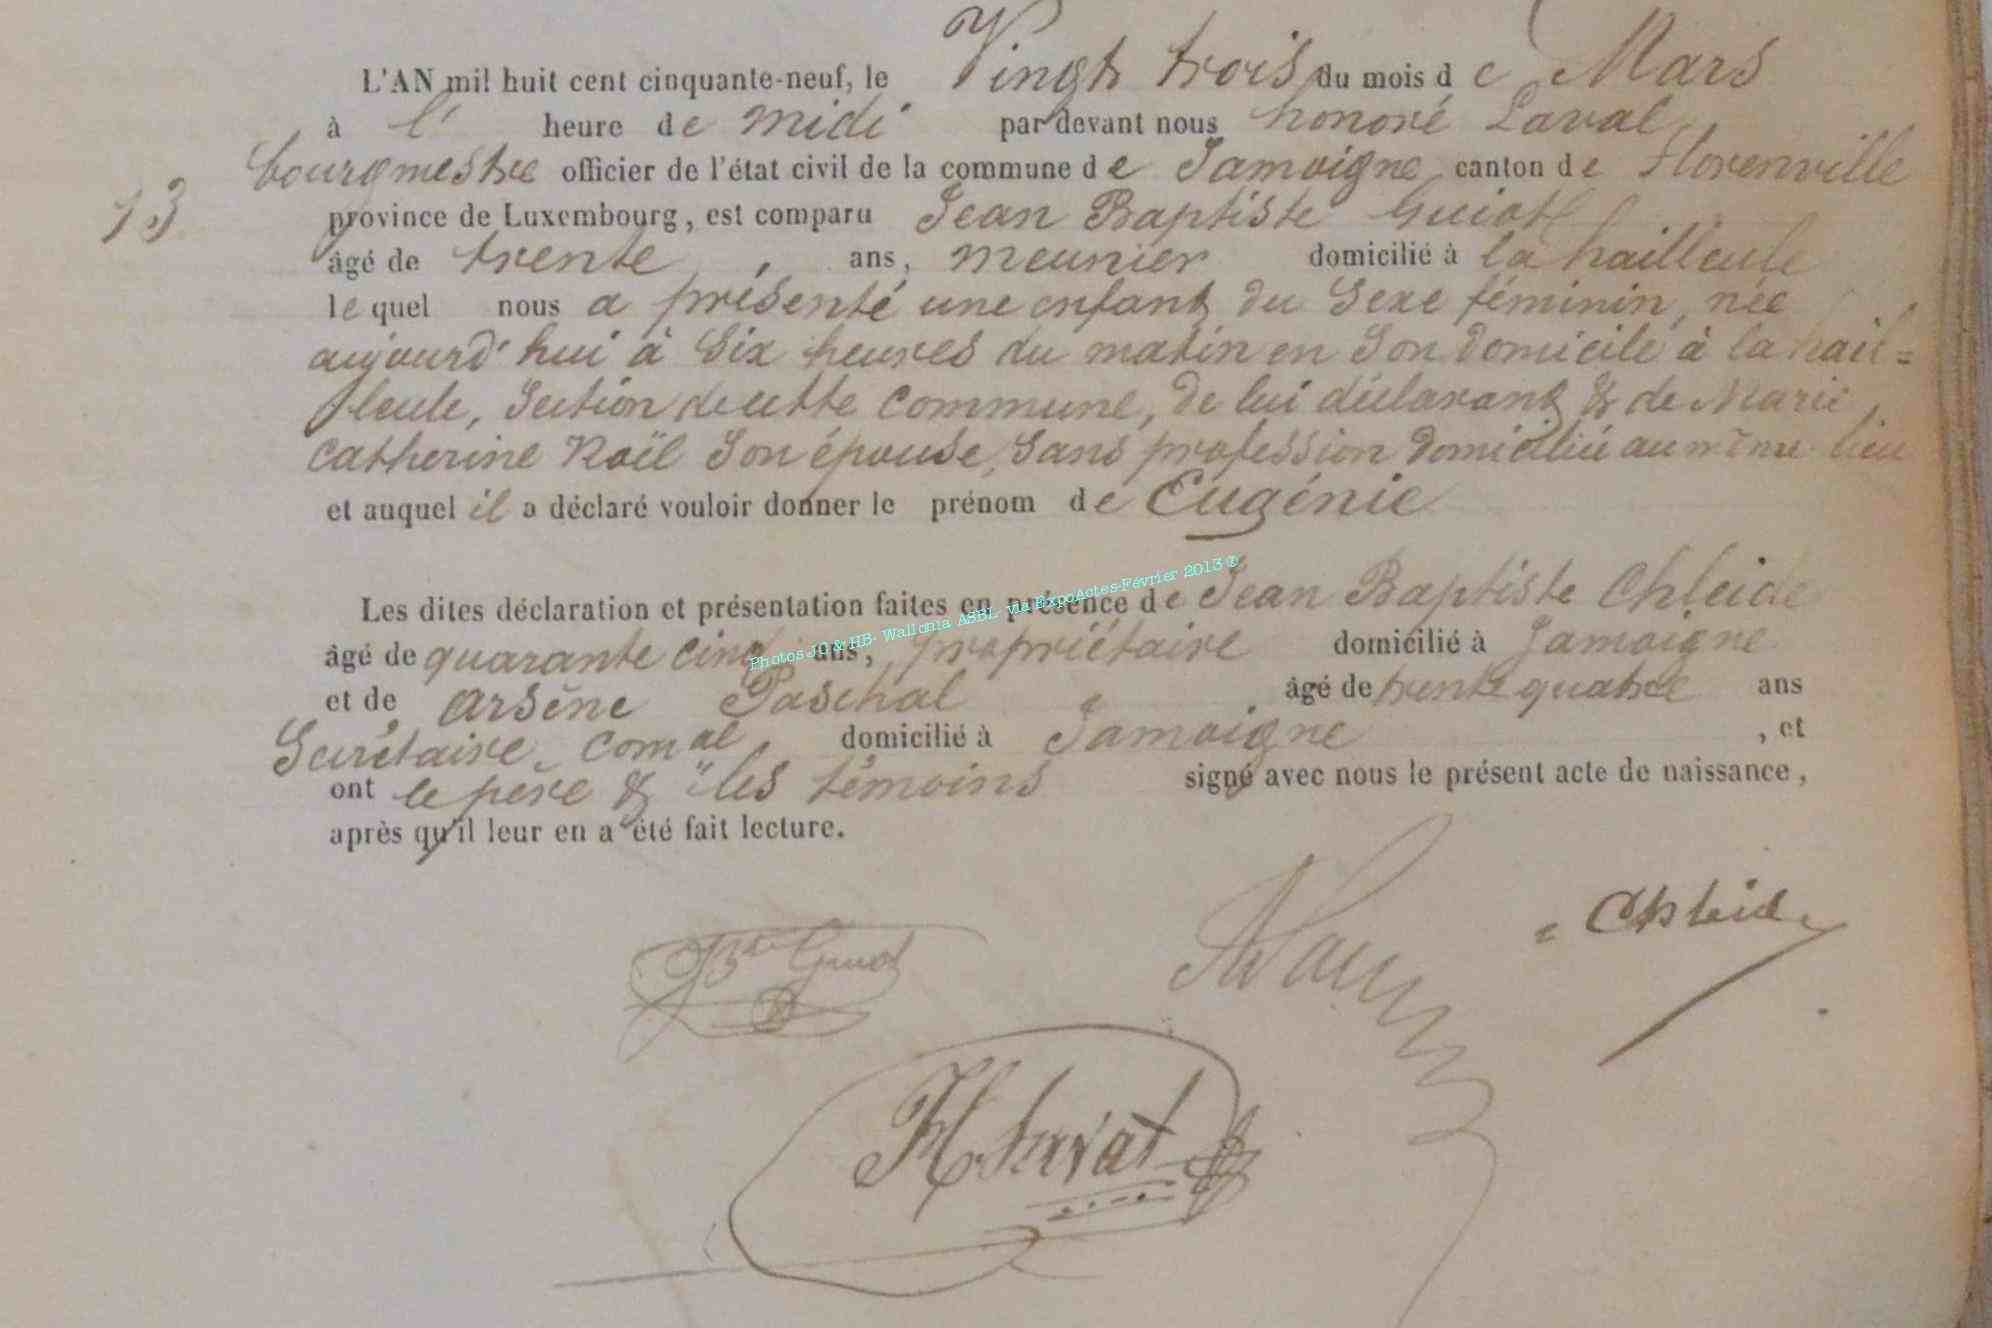 L'AN mil huit cent cinquante-neuf, le Vingt trois du mois de Mars
à l' heure de midi par devant nous honoré Laval
bourgmestre officier de l'état civil de la commune de Jamoigne canton de Florenville
13 province de Luxembourg, est comparu Jean Baptiste Guiot
âgé de trente ans, meunier domicilié à la hailleule
le quel nous a présenté une enfant du Sexe féminin, née
aujourd'hui à Six heures du matin en Son domicile à la hail=
leule, Section de cette commune, de lui déclarant & de Marie
Catherine Roël Son épouse, Sans profession domiciliée au même lieu
et auquel il a déclaré vouloir donner le prénom de Eugénie
Les dites déclaration et présentation faites en présence de Jean Baptiste Chleide
âgé de quarante cinq ans, propriétaire domicilié à Jamoigne
Photos JC & HB- Wallonia ASBL- via ExpoActes-Février 2013 ®
et de Arsène Paschal âgé de trente quatre ans
Secrétaire comal domicilié à Jamoigne , et
ont le père & les témoins signé avec nous le présent acte de naissance,
après qu'il leur en a été fait lecture.
Chleide
Guiot